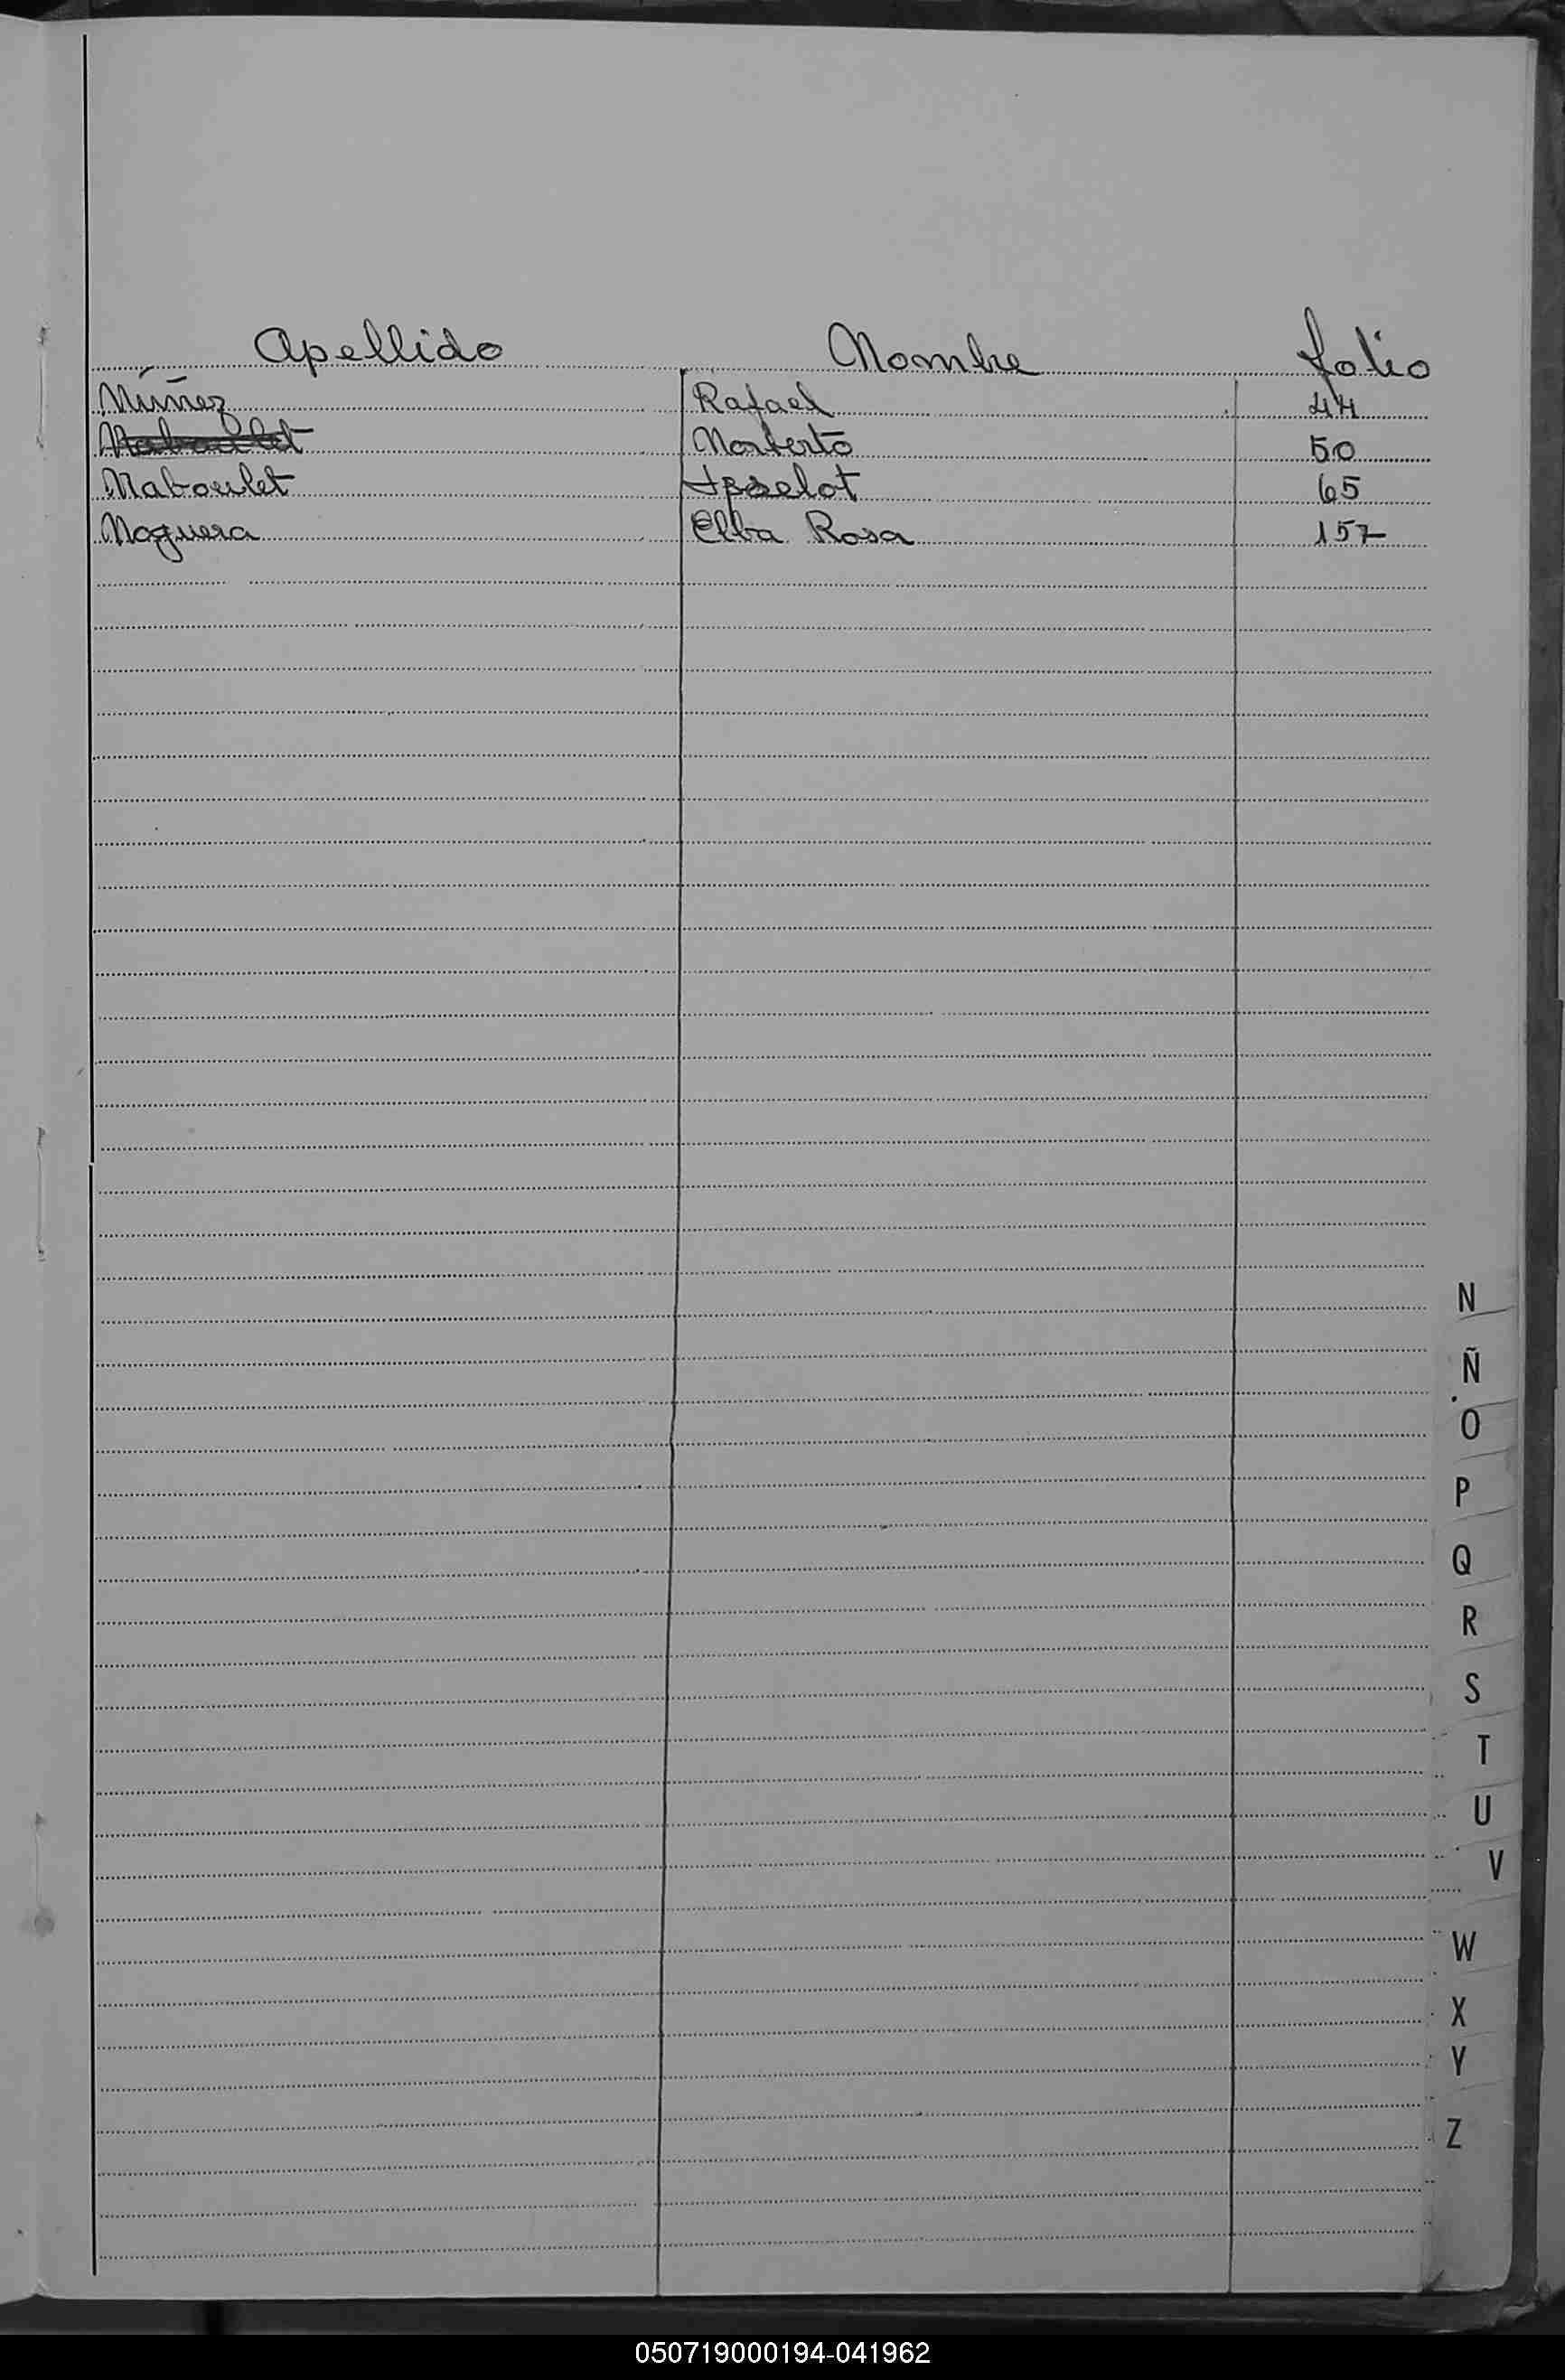 Apellido Nombre folio
Núñez Rafael 44
Naboulet Norberto 50
Naboulet 65
Noguera Elba Rosa 157
N
Ñ
O
P
Q
R
S
T
U
V
W
X
Y
Z
050719000194-041962